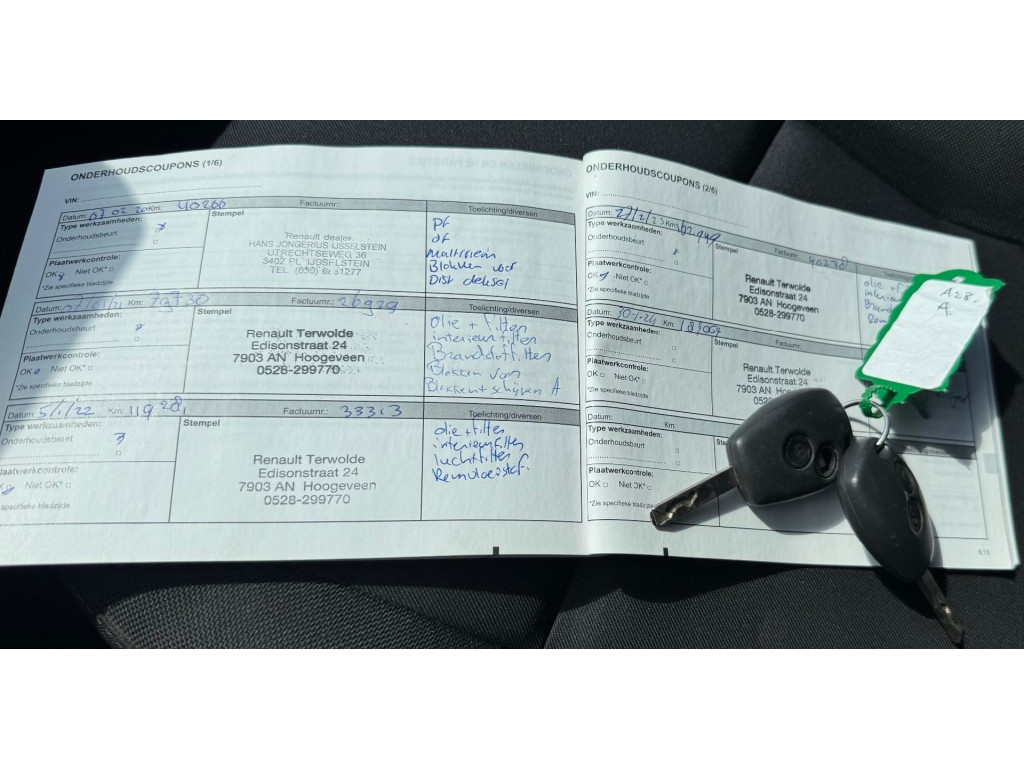 ONDERHOUDSCOUPONS (1/6)
VIN:
Datum: 07 02 20 Km: 40260 Factuurnr.: Toelichting/diversen
Type werkzaamheden: Stempel
Onderhoudsbeurt
Plaatwerkcontrole:
OK Niet OK*
*Zie specifieke bladzijde
Renault dealer
HANS JONGERIUS IJSSELSTEIN
UTRECHTSEWEG 36
3402 PL IJSSELSTEIN
Pf
of
Blokken voor
Dist deksel
Datum: Km: 79730 Factuurnr.: 26929 Toelichting/diversen
Type werkzaamheden: Stempel
Onderhoudsbeurt
Plaatwerkcontrole:
OK Niet OK*
*Zie specifieke bladzijde
Renault Terwolde
Edisonstraat 24
7903 AN Hoogeveen
0528-299770
Olie + filter
interieurfilter
Brandstoffilter
Blokken van
Blokken+schijven A
Datum: 5/1/22 Km: 11928 Factuurnr.: 33313 Toelichting/diversen
Type werkzaamheden: Stempel
Onderhoudsbeurt
Plaatwerkcontrole:
Niet OK*
*Zie specifieke bladzijde
Renault Terwolde
Edisonstraat 24
7903 AN Hoogeveen
0528-299770
olie+filter
interieurfilter
luchtfilter
Remvloeistof
ONDERHOUDSCOUPONS (2/6)
VIN:
Datum: Km: Factuurnr.: 40298
Type werkzaamheden: Stempel
Onderhoudsbeurt
Plaatwerkcontrole:
OK Niet OK*
*Zie specifieke bladzijde
Renault Terwolde
Edisonstraat 24
7903 AN Hoogeveen
0528-299770
olie + f
Datum: Km:
Type werkzaamheden:
Onderhoudsbeurt
Plaatwerkcontrole:
OK Niet OK*
*Zie specifieke bladzijde
Renault Terwolde
Edisonstraat 24
7903 AN
0528
Datum: Km:
Type werkzaamheden:
Onderhoudsbeurt
Plaatwerkcontrole:
OK Niet OK*
*Zie specifieke bladzijde
A28.
A.